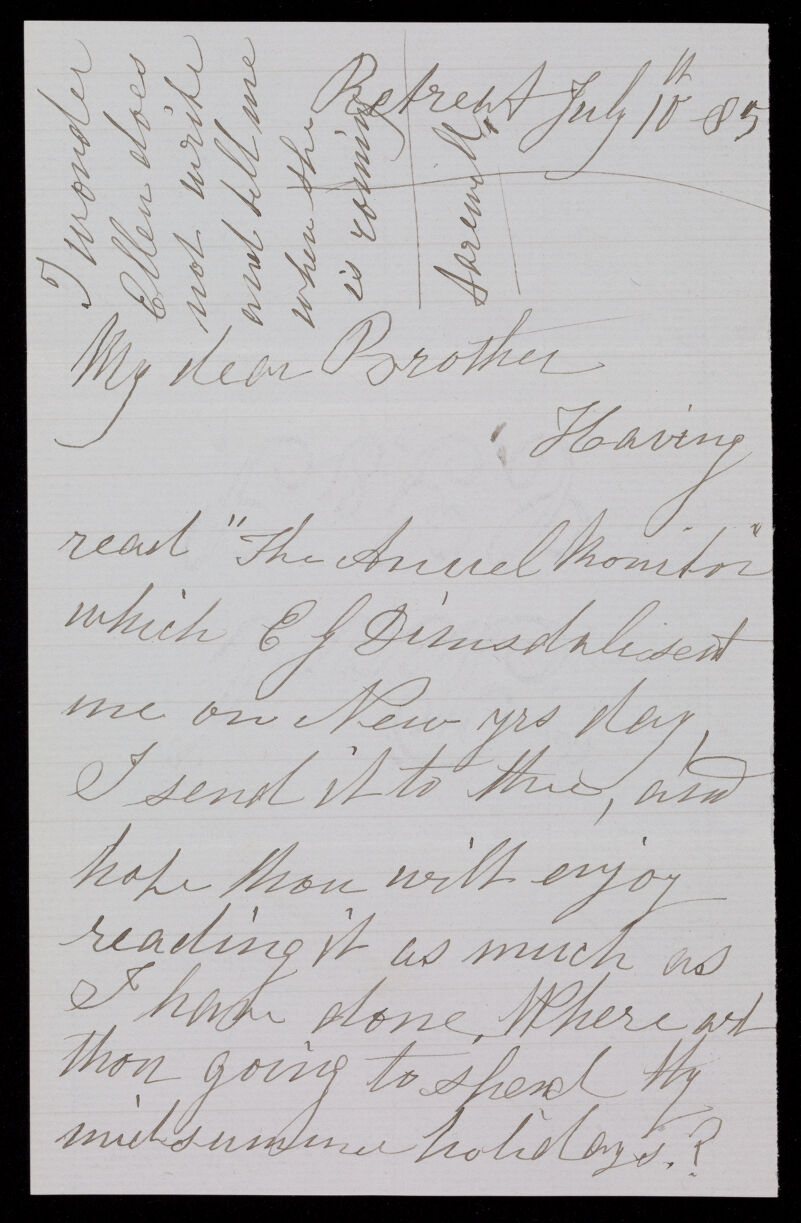 Retreat July 10th 85
My dear Brother
Having
read "The Annuel Monitor"
which E G Dimsdale sent
me on New yrs day,
I send it to thee, and
hope thou wilt enjoy
reading it as much as
I have done. Where art
thou going to spend thy
midsummer holidays.?
I wonder
Ellen does
not write
and tell me
when she
is coming
farewell,